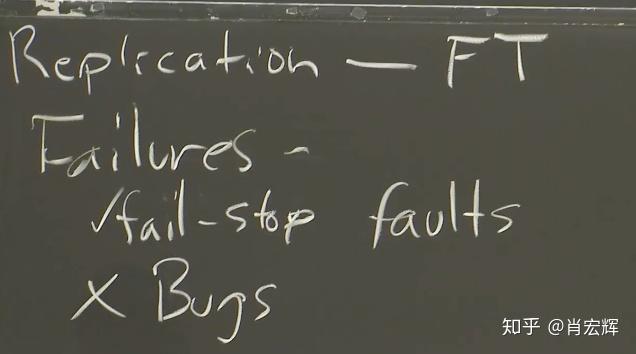 Replication — FT
Failures -
✓fail-stop faults
x Bugs
知乎 @肖宏辉